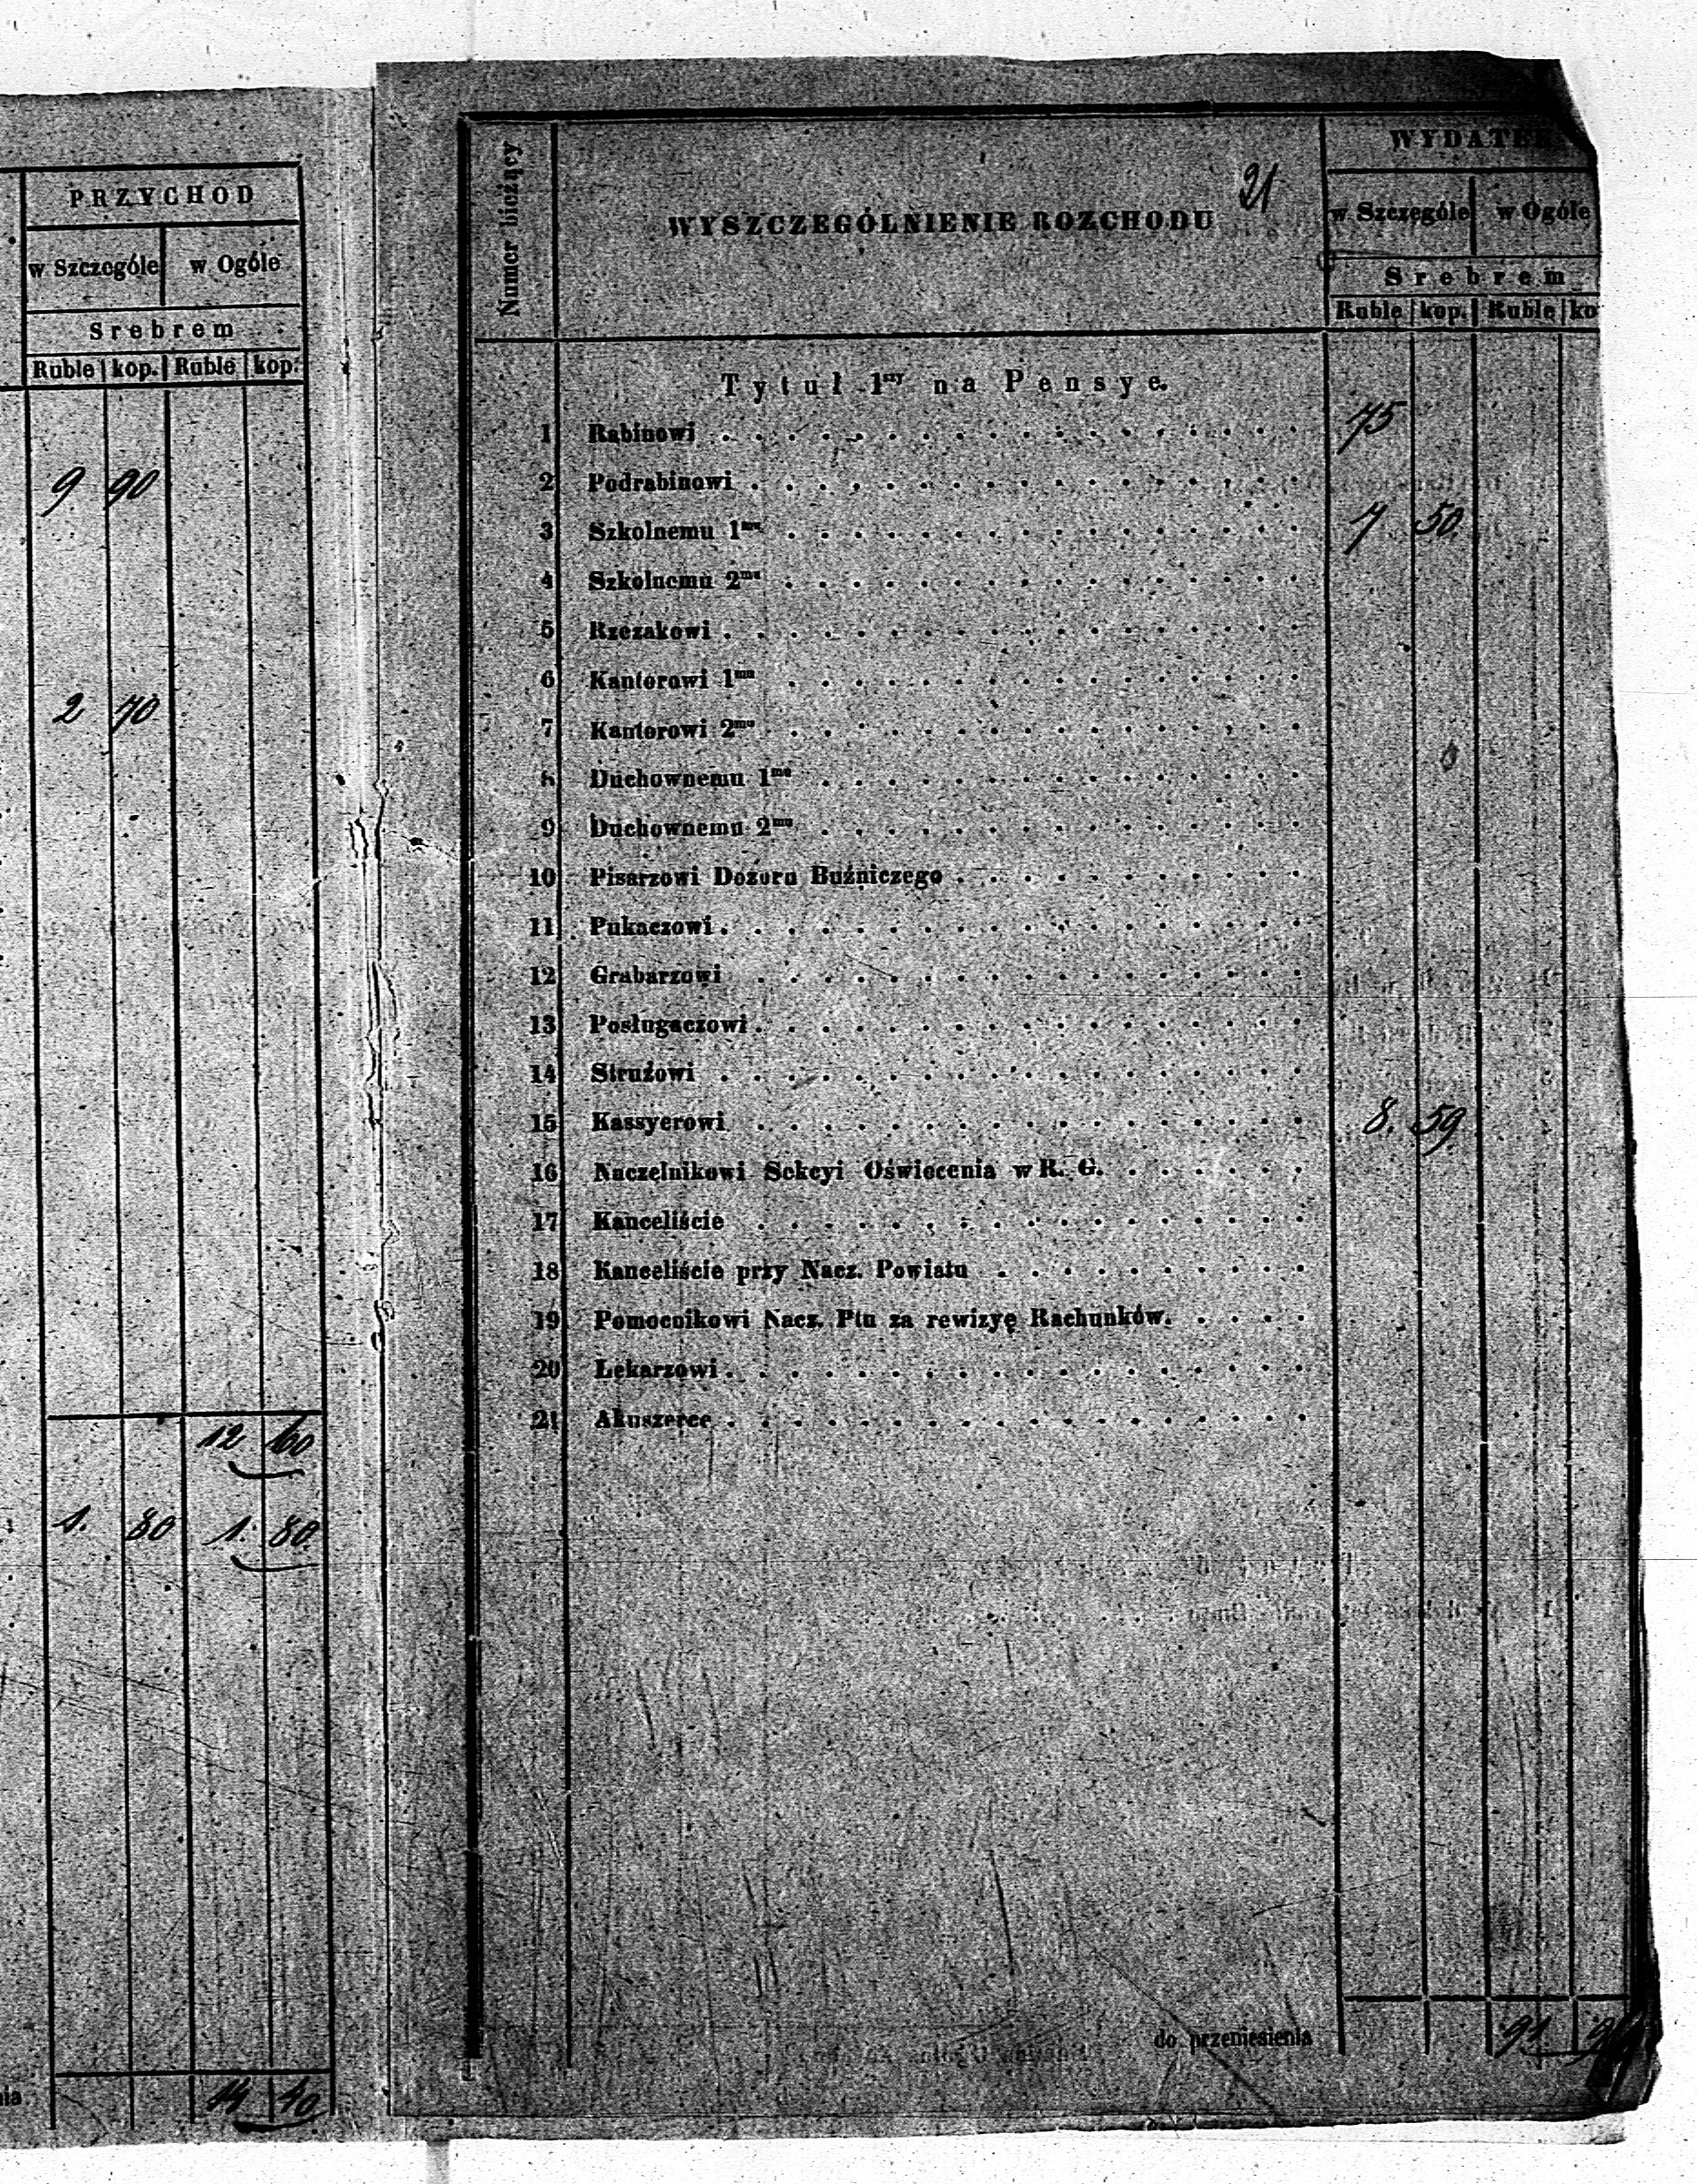 PRZYCHOD
w Szczególe w Ogóle
Srebrem
Ruble kop. Ruble kop.
9 90
2 70
12 60
1. 80 1. 80
14 40
Numer bieżący
WYSZCZEGÓLNIENIE ROZCHODU
21
WYDATEK
w Szczególe w Ogóle
Srebrem
Ruble kop. Ruble ko
Tytuł 1ny na Pensye.
1 Rabinowi 75
2 Podrabinowi
3 Szkolnemu 1mu 7 50
4 Szkolnemu 2mu
5 Rzezakowi
6 Kantorowi 1mu
7 Kantorowi 2mu
8 Duchownemu 1mu
9 Duchownemu 2mu
10 Pisarzowi Dozoru Buźniczego
11 Pukaczowi
12 Grabarzowi
13 Posługaczowi
14 Strużowi
15 Kassyerowi 8. 59
16 Naczelnikowi Sekcyi Oświecenia w R. G.
17 Kanceliście
18 Kanceliście przy Nacz. Powiatu
19 Pomocnikowi Nacz. Ptu za rewizyę Rachunków.
20 Lekarzowi
21 Akuszerce
do przeniesienia 91